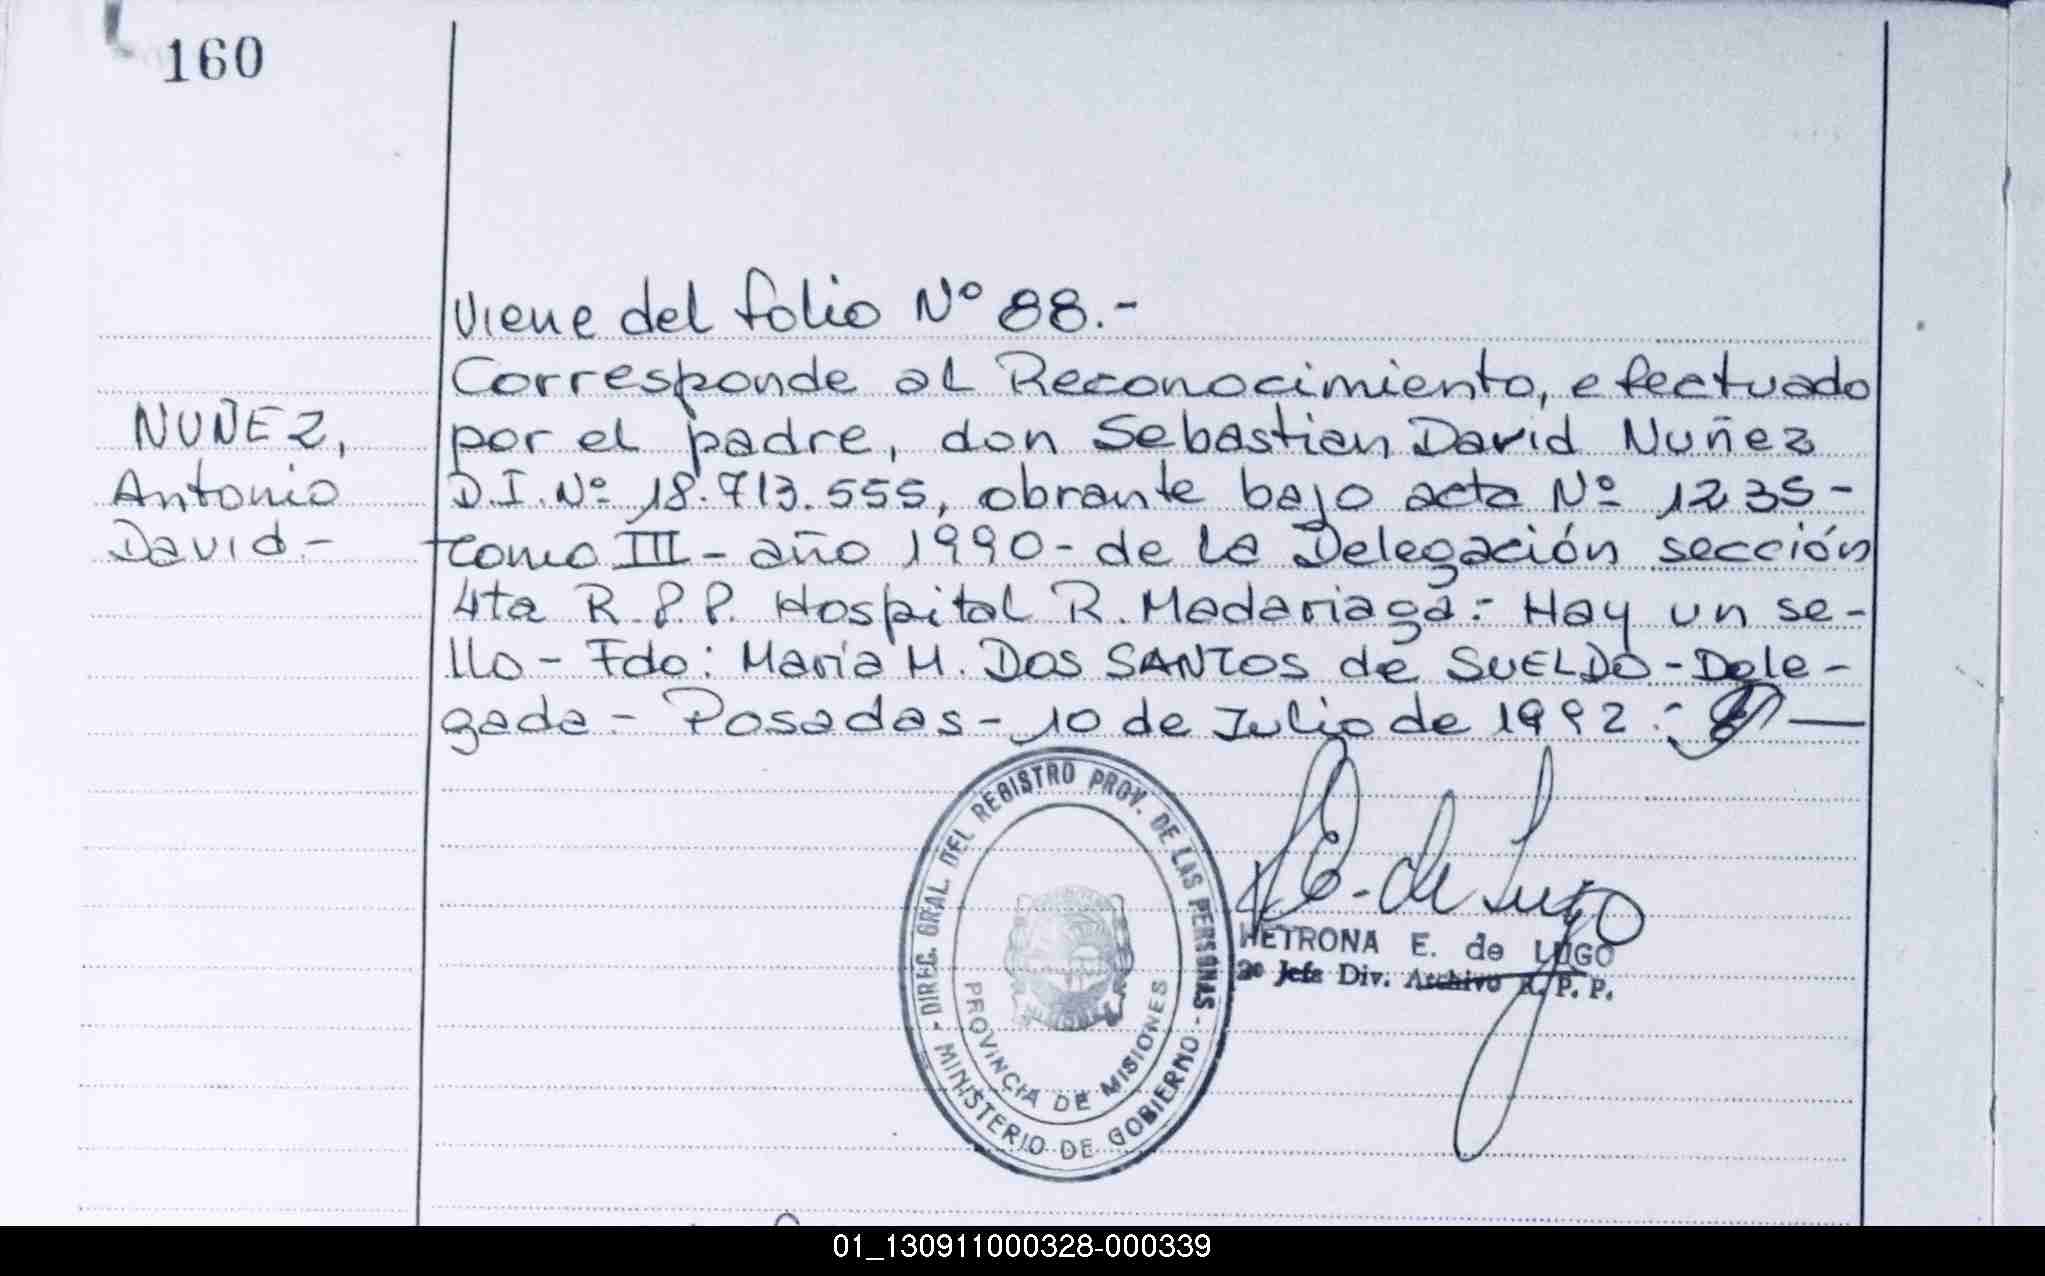 160
Viene del folio Nº 88.-
Corresponde al Reconocimiento, efectuado
NUÑEZ,
por el padre, don Sebastian David Nuñez
Antonio
D.I. Nº 18.713.555, obrante bajo acta Nº 1235-
David-
tomo III - año 1990 - de la Delegación sección
4ta R.P.P. Hospital R. Madariaga.- Hay un se-
llo - Fdo: Maria M. DOS SANTOS de SUELDO - Dele-
gada - Posadas - 10 de Julio de 1992.-
DIREC. GRAL. DEL REGISTRO PROV. DE LAS PERSONAS
PROVINCIA DE MISIONES
- MINISTERIO DE GOBIERNO -
P.E. de Lugo
PETRONA E. de LUGO
2º Jefa Div. Archivo R. P. P.
01_130911000328-000339